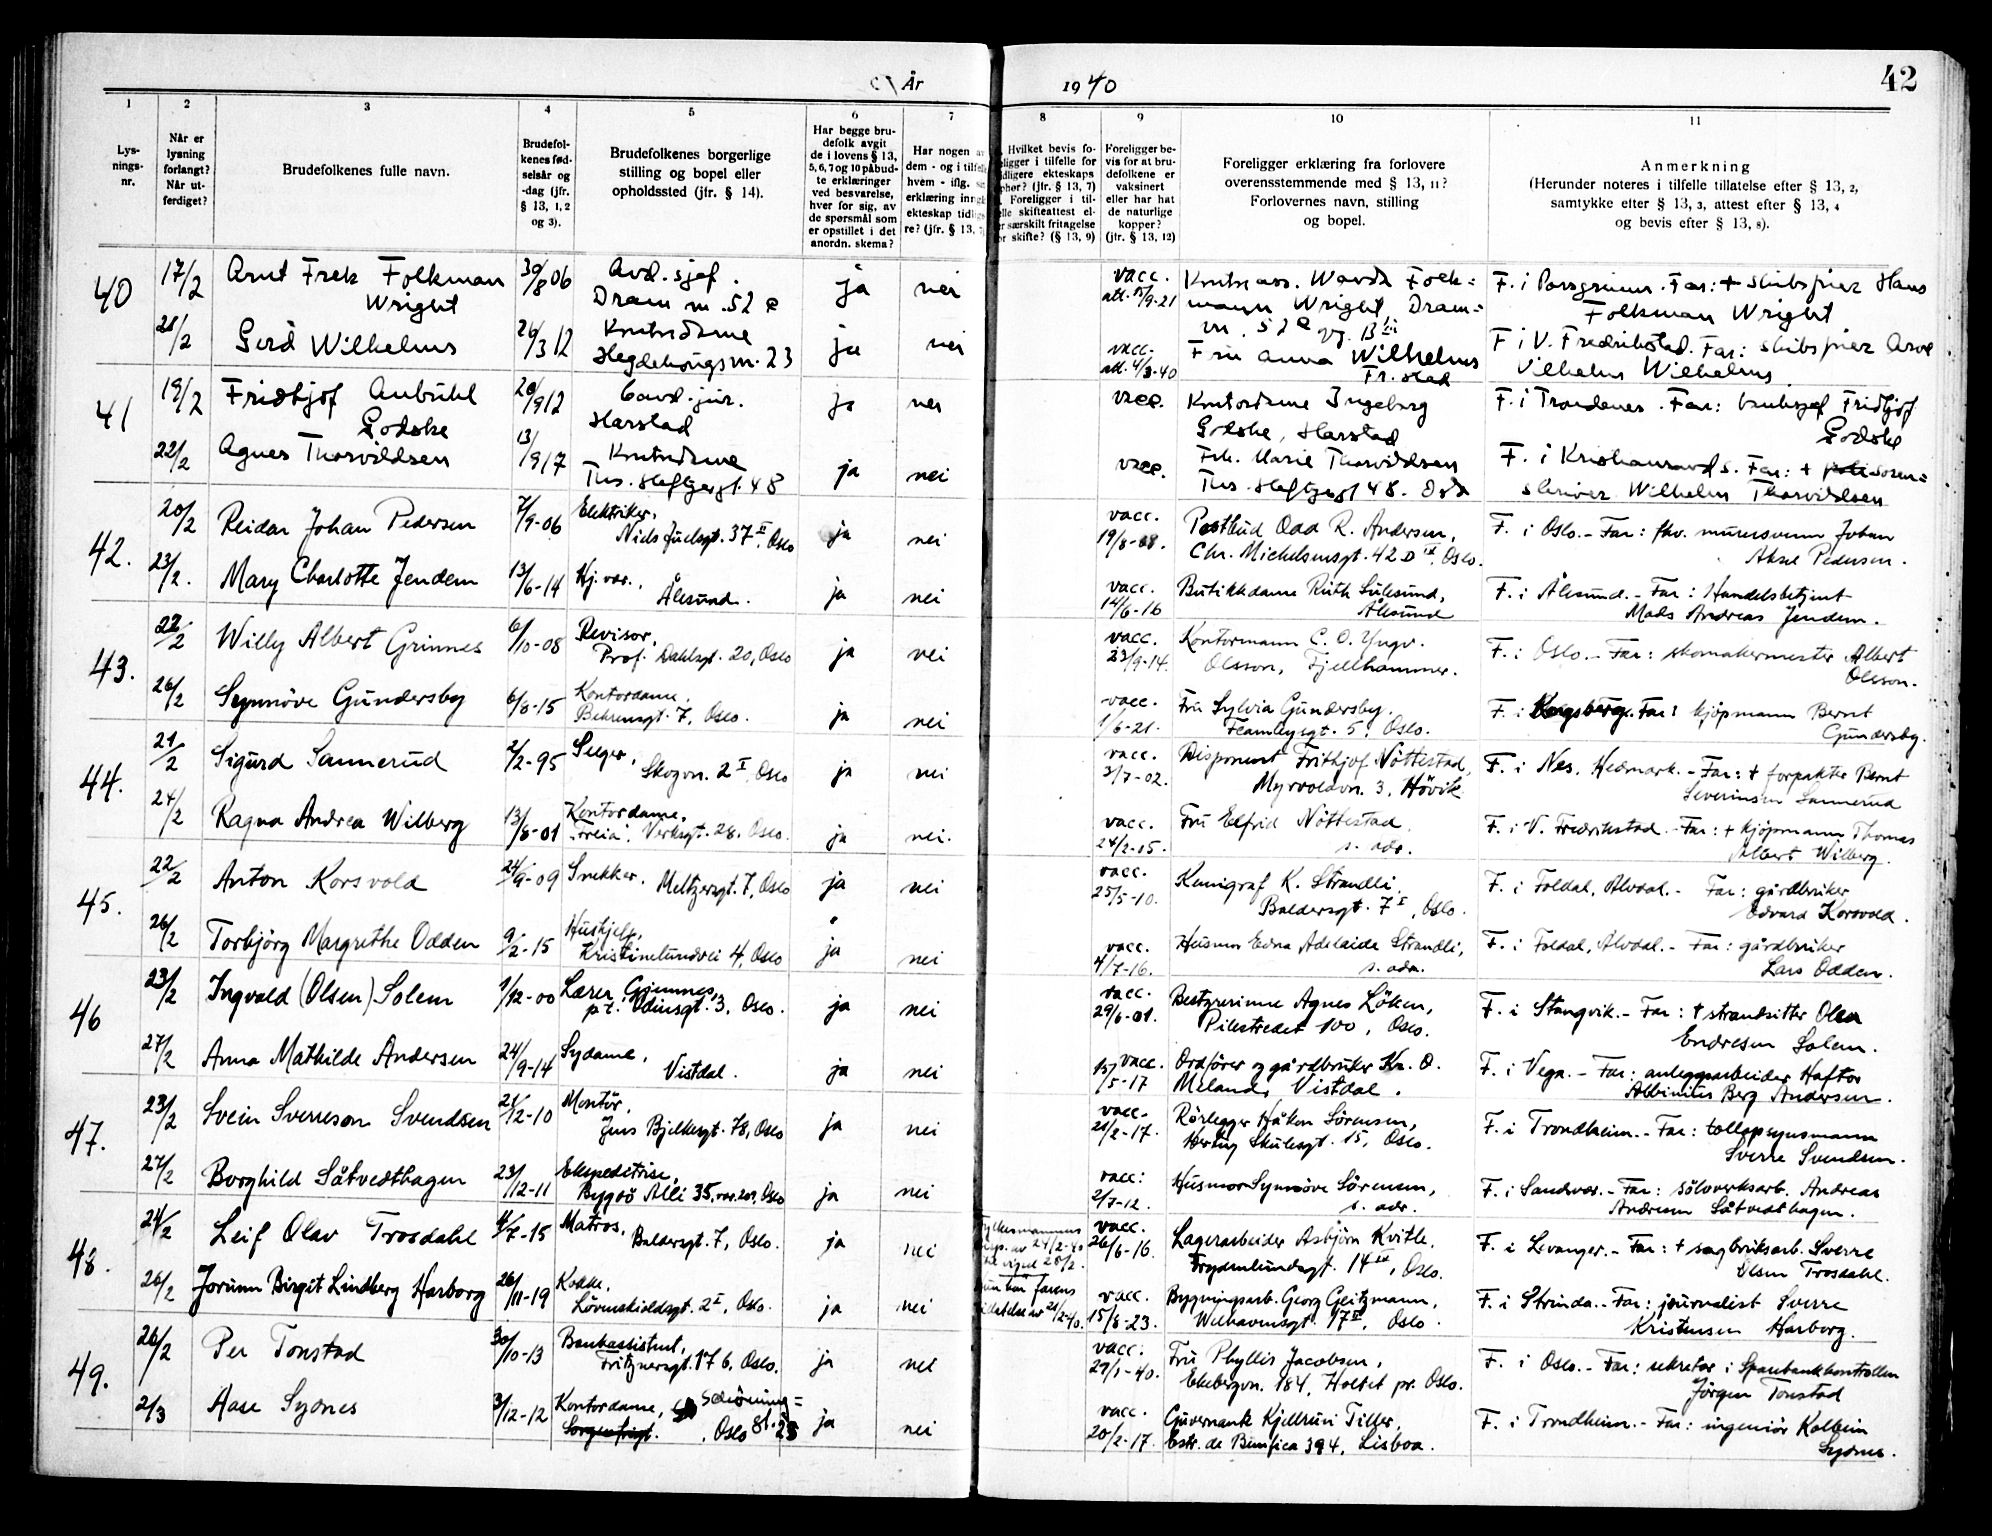 År 1940
42
1
2
3
4
5
6
7
8
9
10
11
Lys-
nings-
nr.
Når er
lysning
forlangt?
Når ut-
ferdiget?
Brudefolkenes fulle navn.
Brudefol-
kenes fød-
selsår og
-dag (jfr.
§ 13, 1, 2
og 3).
Brudefolkenes borgerlige
stilling og bopel eller
opholdssted (jfr. § 14).
Har begge bru-
defolk avgit
de i lovens § 13,
5, 6, 7 og 10 påbud-
te erklæringer
ved besvarelse,
hver for sig, av
de spørsmål som
er opstillet i det
anordn. skema?
Har nogen
dem - og i tilf
hvem - iflg.
erklæring inng
ekteskap tidl
re? (jfr. § 13,
Hvilket bevis fo-
ligger i tilfelle for
idligere ekteskaps
phør? (jfr. § 13, 7)
Foreligger i til-
elle skifteattest el-
er særskilt fritagelse
or skifte? (§ 13, 9)
Foreligger be-
vis for at bru-
defolkene er
vaksinert
eller har hat
de naturlige
kopper?
(jfr. § 13, 12)
Foreligger erklæring fra forlovere
overensstemmende med § 13, 11?
Forlovernes navn, stilling
og bopel.
Anmerkning
(Herunder noteres i tilfelle tillatelse efter § 13, 2,
samtykke efter § 13, 3, attest efter § 13, 4
og bevis efter § 13, 8).
40 17/2 Arnt Frek Folkman 30/8 06 Avd.sjef. ja nei vacc. Wright Folk=
Wright Dram m. 52 att. 9-21 mann Wright, Dram=
F. i Porsgrunn. Far: + skibsfører Hans
Folkman Wright
/2 Gerd Wilhelms 26/3 12 Kontordame ja nei vacc. Fru Anna Wilhelms
Hegdehaugsv. 23 att. 4/3-40 Fr.stad
F i V. Fredrikstad. Far: skibsfører
Vilhelm Wilhelms
41 19/2 Fridtjof Anbuhl 20/9 12 Cand. jur. ja nei vacc. Kontordame Ingeborg
Godske Harstad Godske, Harstad
F. i Trondenes. Far: Fridtjof
Godske
22/2 Agnes Thorvildsen 13/9 17 Kontordame ja nei vacc. Frk. Marie Thorvildsen
Ths. Heftyesgt. 48 Ths. Heftyesgt 48. Oslo
F. i Kristiansand S. Far: + soren=
skriver Wilhelm Thorvildsen
42. 20/2 Reidar Johan Pedersen 7/9-06 Elektriker, ja nei vacc. Postbud Odd R. Andersen,
Niels Juelsgt. 37 II, Oslo 19/8-08. Chr. Michelsensgt. 42 D IV, Oslo.
F. i Oslo. - Far: fhv. murersvenn Johan
Aksel Pedersen.
23/2. Mary Charlotte Jendem 13/6-14 Hj.vær., ja nei vacc. Butikkdame Ruth Sulesund,
Ålesund. 14/6-16 Ålesund
F. i Ålesund. - Far: Handelsbetjent
Mads Andreas Jendem.
43. 22/2 Willy Albert Grinnes 6/10-08 Revisor, ja nei vacc. Kontormann C. O. Yngv.
Prof. Dahlsgt. 20, Oslo 23/9-14. Olsson, Fjellhammer.
F. i Oslo. - Far: skomakermester Albert
Olsson.
26/2 Synnöve Gundersby 6/8-15 Kontordame. ja nei vacc. Fru Sylvia Gundersby.
Behrensgt. 7, Oslo. 1/6-21. Fearnleysgt. 5, Oslo.
F. i Kongsberg. Far: kjöpmann Bernt
Gundersby.
44. 21/2 Sigurd Sannerud 2/2-95 Selger, ja nei vacc. Disponent Frithjof Nöttestad,
Skogvn. 2 I, Oslo 3/7-02. Myrvoldvn. 3, Hövik
F. i Nes, Hedmark. - Far: + forpakter Bernt
Severinsen Sannerud
24/2 Ragna Andrea Wilberg 13/8-01 Kontordame, ja nei. vacc. Fru Elfrid Nöttestad.
"Freia". Verksgt. 28, Oslo. 24/2-15. s. adr.
F. i V. Fredrikstad. - Far: + kjöpmann Thomas
Albert Wilberg.
45. 22/2 Anton Korsvold 24/9-09 Snekker. Meltzersgt. 7, Oslo ja nei vacc. Kemigraf K. Strandli,
25/5-10. Baldersgt. 7 I, Oslo.
F. i Foldal, Alvdal. - Far: gårdbruker
Edvard Korsvold.
26/2 Torbjörg Margrethe Odden 9/2-15 Hushjelp, ja nei vacc. Husmor Edna Adelaide Strandli,
Kristinelundvei 4, Oslo 4/7-16. s. adr.
F. i Foldal, Alvdal. - Far: gårdbruker
Lars Odden.
46 23/2 Ingvald (Olsen) Solem 1/12-00 Lærer, Gjemnes, ja nei vacc. Bestyrerinne Agnes Löken,
p.t. Odinsgt. 3, Oslo. 29/6-01. Pilestredet 100, Oslo.
F. i Stangvik. - Far: + strandsitter Olen
Endresen Solem.
27/2 Anna Mathilde Andersen 24/9-14 Sydame, ja nei vacc. Ordförer og gårdbruker Kn. O.
Vistdal. 15/5-17 Meland, Vistdal.
F. i Vega. - Far: anleggsarbeider Haftor
Albinius Berg Andersen.
47. 23/2 Svein Sverreson Svendsen 21/12-10 Montör, ja nei vacc. Rörlegger Håkon Sörensen,
Jens Bjelkesgt. 78, Oslo 21/2-17. Hertug Skulesgt. 15, Oslo.
F. i Trondheim. - Far: tolloppsynsmann
Sverre Svendsen.
27/2 Borghild Såtvedthagen 23/12-11 Ekspeditrise, ja nei vacc: Husmor Synnöve Sörensen,
Bygdö Allé 35, vær. 203, Oslo 2/7-12. s. adr.
F. i Sandsvær. - Far: sölvverksarb. Andreas
Andresen Såtvedthagen.
48. 24/2 Leif Olav Trosdahl 4/7-15 Matros, ja nei vacc. Lagerarbeider Asbjörn Kvitle,
Baldersgt. 7, Oslo. 26/6-16. Frydenlundsgt. 14 III, Oslo.
Fylkesmannens
disp. av 24/2-40
F. i Levanger. - Far: + sagbruksarb. Sverre
Olsen Trosdahl.
26/2 Jorunn Birgit Lindberg Harborg 26/11-19 Kokke, ja nei vacc. Bygningsarb. Georg Geitzmann,
Lövenskioldsgt. 2 I, Oslo. 15/8-23. Welhavensgt. 17 II, Oslo.
Hun har farens
tillatelse av 21/2-40.
F. i Strinda. - Far: journalist Sverre
Kristensen Harborg.
49. 26/2 Per Tonstad 30/10-13 Bankassistent, ja nei vacc. Fru Phyllis Jacobsen,
Fritznersgt. 17 b, Oslo. 27/1-40. Ekebergvn. 184, Holtet pr. Oslo.
F. i Oslo. - Far: sekretær i Sparebankkontrollen
Jörgen Tonstad
2/3 Aase Sydnes 3/12-12 Kontordame, Schöning= ja nei vacc. Guvernante Kjellrun Tiller,
Sorgenfrigt. , Oslo gt. 25 20/2-17. Estr. de Benfica 394, Lisboa.
F. i Trondheim. - Far: ingeniör Kolbein
Sydnes.